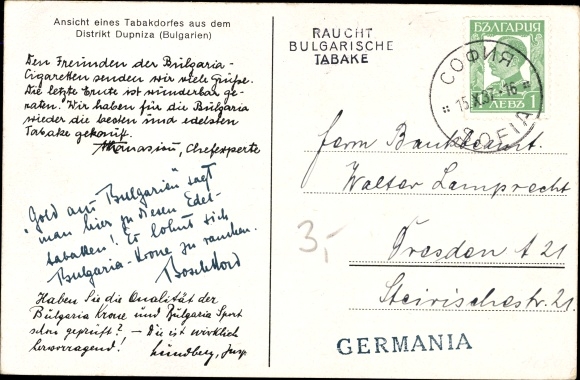 Ansicht eines Tabakdorfes aus dem
Distrikt Dupniza (Bulgarien)
Den Freunden der Bulgaria-
Cigaretten senden wir viele Grüße.
Die letzte Ernte ist wunderbar ge-
raten! Wir haben für die Bulgaria
wieder die besten und edelsten
Tabake gekauft.
Athanasiou, Chefexperte
"Gold aus Bulgarien" sagt
man hier zu diesen Edel-
tabaken! Es lohnt sich
Bulgaria-Krone zu rauchen.
Haben Sie die Qualität der
Bulgaria Krone und Bulgaria Sport
schon geprüft? – Die ist wirklich
hervorragend! Lundberg, Insp.
RAUCHT
BULGARISCHE
TABAKE
БЪЛГАРИЯ
ЛЕВЪ 1
СОФИЯ
15.X.37-16
SOFIA
Herrn Bankbeamt.
Walter Lamprecht
3,-
Dresden A 21
Steirischestr. 21
GERMANIA